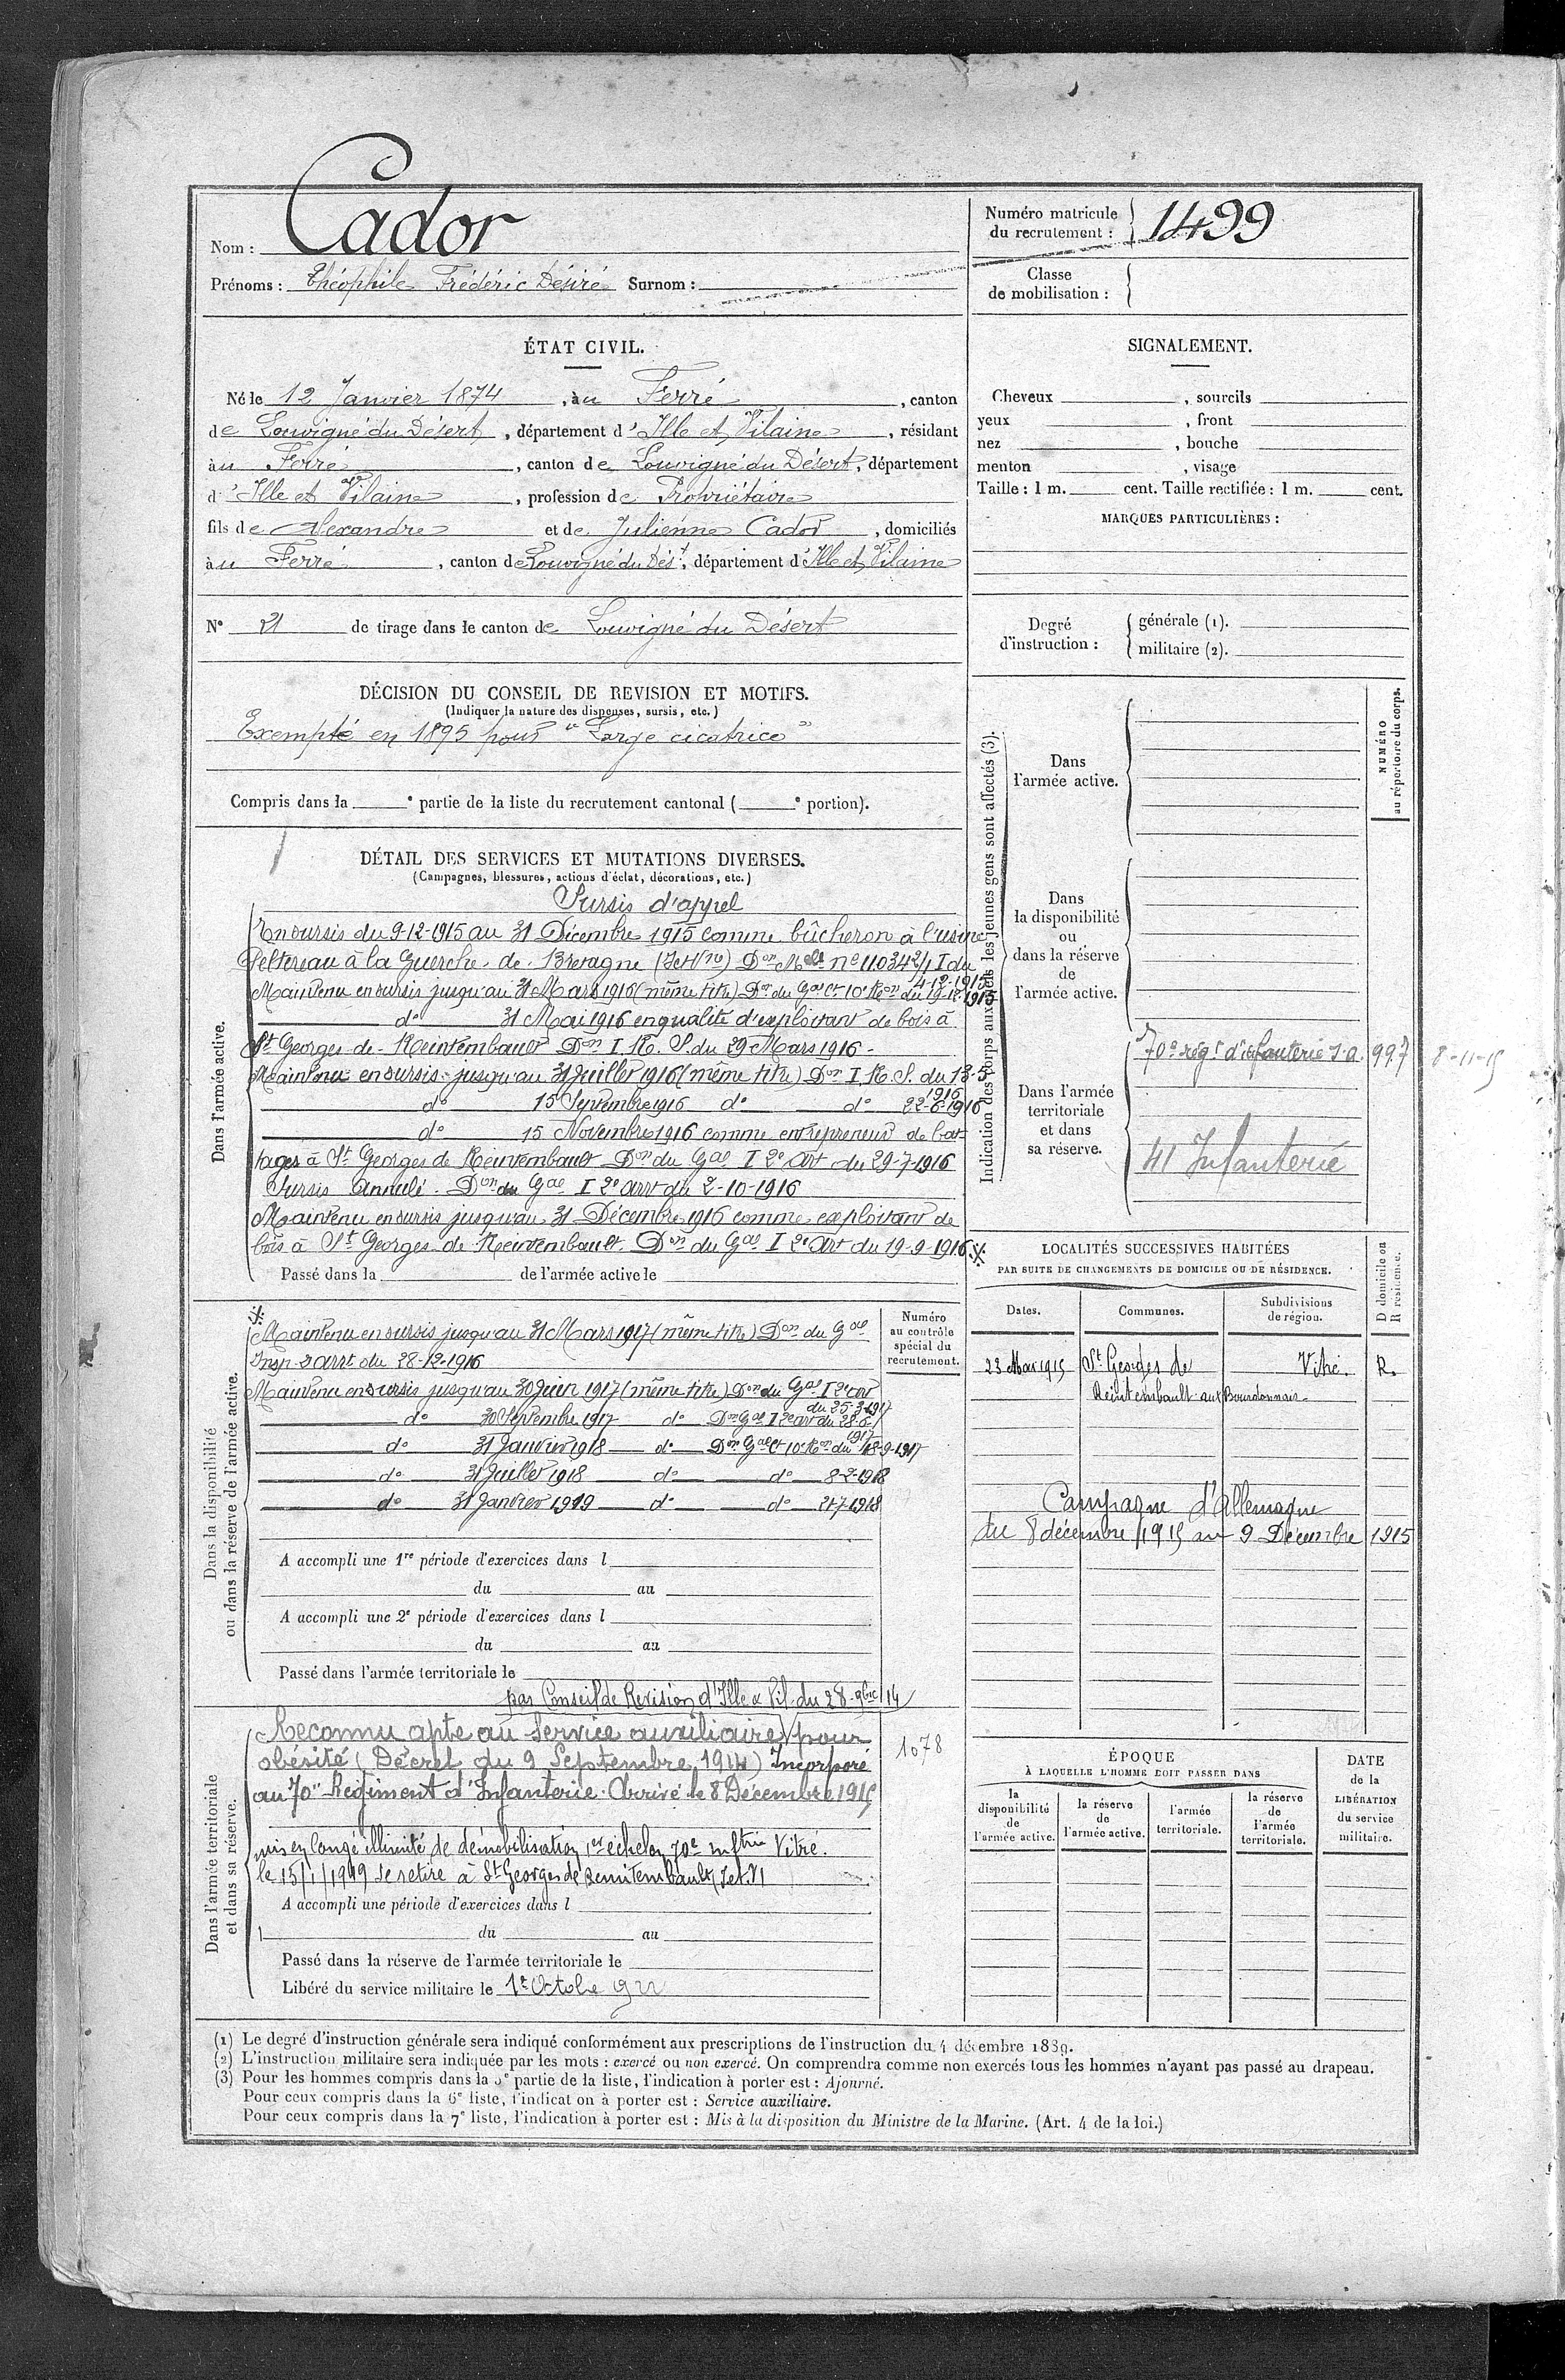 Nom : Cador
Prénoms : Théophile Frédéric Désiré Surnom :
Numéro matricule du recrutement : 1499
Classe de mobilisation :
ÉTAT CIVIL.
Né le 12 Janvier 1874, au Ferré, canton
de Louvigné du Désert, département d'Ille et Vilaine, résidant
au Ferré, canton de Louvigné du Désert, département
d'Ille et Vilaine, profession de Propriétaire
fils de Alexandre et de Julienne Cador, domiciliés
au Ferré, canton de Louvigné du Dést, département d'Ille et Vilaine
N° 21 de tirage dans le canton de Louvigné du Désert
DÉCISION DU CONSEIL DE REVISION ET MOTIFS.
(Indiquer la nature des dispenses, sursis, etc.)
Exempté en 1895 pour "Large cicatrice"
Compris dans la e partie de la liste du recrutement cantonal ( e portion).
DÉTAIL DES SERVICES ET MUTATIONS DIVERSES.
(Campagnes, blessures, actions d'éclat, décorations, etc.)
Dans l'armée active.
Sursis d'appel
En sursis du 9-12-1915 au 31 Décembre 1915 comme bûcheron à l'usine
Peltereau à la Guerche-de-Bretagne (I et Vne) Don Mlle N° 11034 2/1 I du
4-12-1915
Maintenu en sursis jusqu'au 31 Mars 1916 (même titre) Don du Gal Ct 10e Ron du 19-12-1915
do 31 Mai 1916 en qualité d'exploitant de bois à
St Georges-de-Reintembault Don I. R. S. du 29 Mars 1916 -
Maintenu en sursis jusqu'au 31 Juillet 1916 (même titre) Don I. R. S. du 13-5
1916
do 15 Septembre 1916 do do 22-6-1916
do 15 Novembre 1916 comme entrepreneur de bat-
tages à St Georges de Reintembault Don du Gal I 2e Art du 29-7-1916
Sursis Annulé. Don du Gal I 2e arrt du 2-10-1916
Maintenu en sursis jusqu'au 31 Décembre 1916 comme exploitant de
bois à St Georges de Reintembault. Don du Gal I 2e Art du 19-9-1916
Passé dans la de l'armée active le
Dans la disponibilité ou dans la réserve de l'armée active.
Numéro au contrôle spécial du recrutement.
Maintenu en sursis jusqu'au 31 Mars 1917 (même titre) Don du Gal
Insp 2 arrt du 28-12-1916
Maintenu en sursis jusqu'au 30 Juin 1917 (même titre) Don du Gal I 2e arrt
du 25-3-1917
do 30 Septembre 1917 do Don Gal I 2e art du 28-6-
1917
do 31 Janvier 1918 do Don Gal Ct 10e Ron du 18-9-1917
do 31 Juillet 1918 do do 8-2-1918
do 31 Janvier 1919 do do 21-7-1918
A accompli une 1re période d'exercices dans l
du au
A accompli une 2e période d'exercices dans l
du au
Passé dans l'armée territoriale le
par Conseil de Revision d'Ille & Vil. du 28-9bre 14
Dans l'armée territoriale et dans sa réserve.
Reconnu apte au Service auxiliaire pour
obésité (Décret du 9 Septembre 1914) Incorporé
au 70e Régiment d'Infanterie. Arrivé le 8 Décembre 1915
1078
mis en Congé illimité de démobilisation 1er échelon 70e Inftrie Vitré.
le 15/1/1919 se retire à St Georges de Reintembault I et V
A accompli une période d'exercices dans l
du au
Passé dans la réserve de l'armée territoriale le
Libéré du service militaire le 1er Octobre 922
SIGNALEMENT.
Cheveux , sourcils
yeux , front
nez , bouche
menton , visage
Taille : 1 m. cent. Taille rectifiée : 1 m. cent.
MARQUES PARTICULIÈRES :
Degré d'instruction : générale (1).
militaire (2).
Indication des corps auxquels les jeunes gens sont affectés (3).
NUMÉRO au répertoire du corps.
Dans l'armée active.
Dans la disponibilité ou dans la réserve de l'armée active.
Dans l'armée territoriale et dans sa réserve.
70e régt d'infanterie S.A. 997 8-11-15
41 Infanterie
LOCALITÉS SUCCESSIVES HABITÉES
PAR SUITE DE CHANGEMENTS DE DOMICILE OU DE RÉSIDENCE.
Dates. Communes. Subdivisions de région. D domicile ou R résidence.
23 Mai 1915 St Georges de Vitré. R.
Reintembault aux Bourdonnais
Campagne d'Allemagne
du 8 décembre 1915 au 9 Décembre 1915
ÉPOQUE
À LAQUELLE L'HOMME DOIT PASSER DANS
la disponibilité de l'armée active.
la réserve de l'armée active.
l'armée territoriale.
la réserve de l'armée territoriale.
DATE de la LIBÉRATION du service militaire.
(1) Le degré d'instruction générale sera indiqué conformément aux prescriptions de l'instruction du 4 décembre 1889.
(2) L'instruction militaire sera indiquée par les mots : exercé ou non exercé. On comprendra comme non exercés tous les hommes n'ayant pas passé au drapeau.
(3) Pour les hommes compris dans la 5e partie de la liste, l'indication à porter est : Ajourné.
Pour ceux compris dans la 6e liste, l'indication à porter est : Service auxiliaire.
Pour ceux compris dans la 7e liste, l'indication à porter est : Mis à la disposition du Ministre de la Marine. (Art. 4 de la loi.)